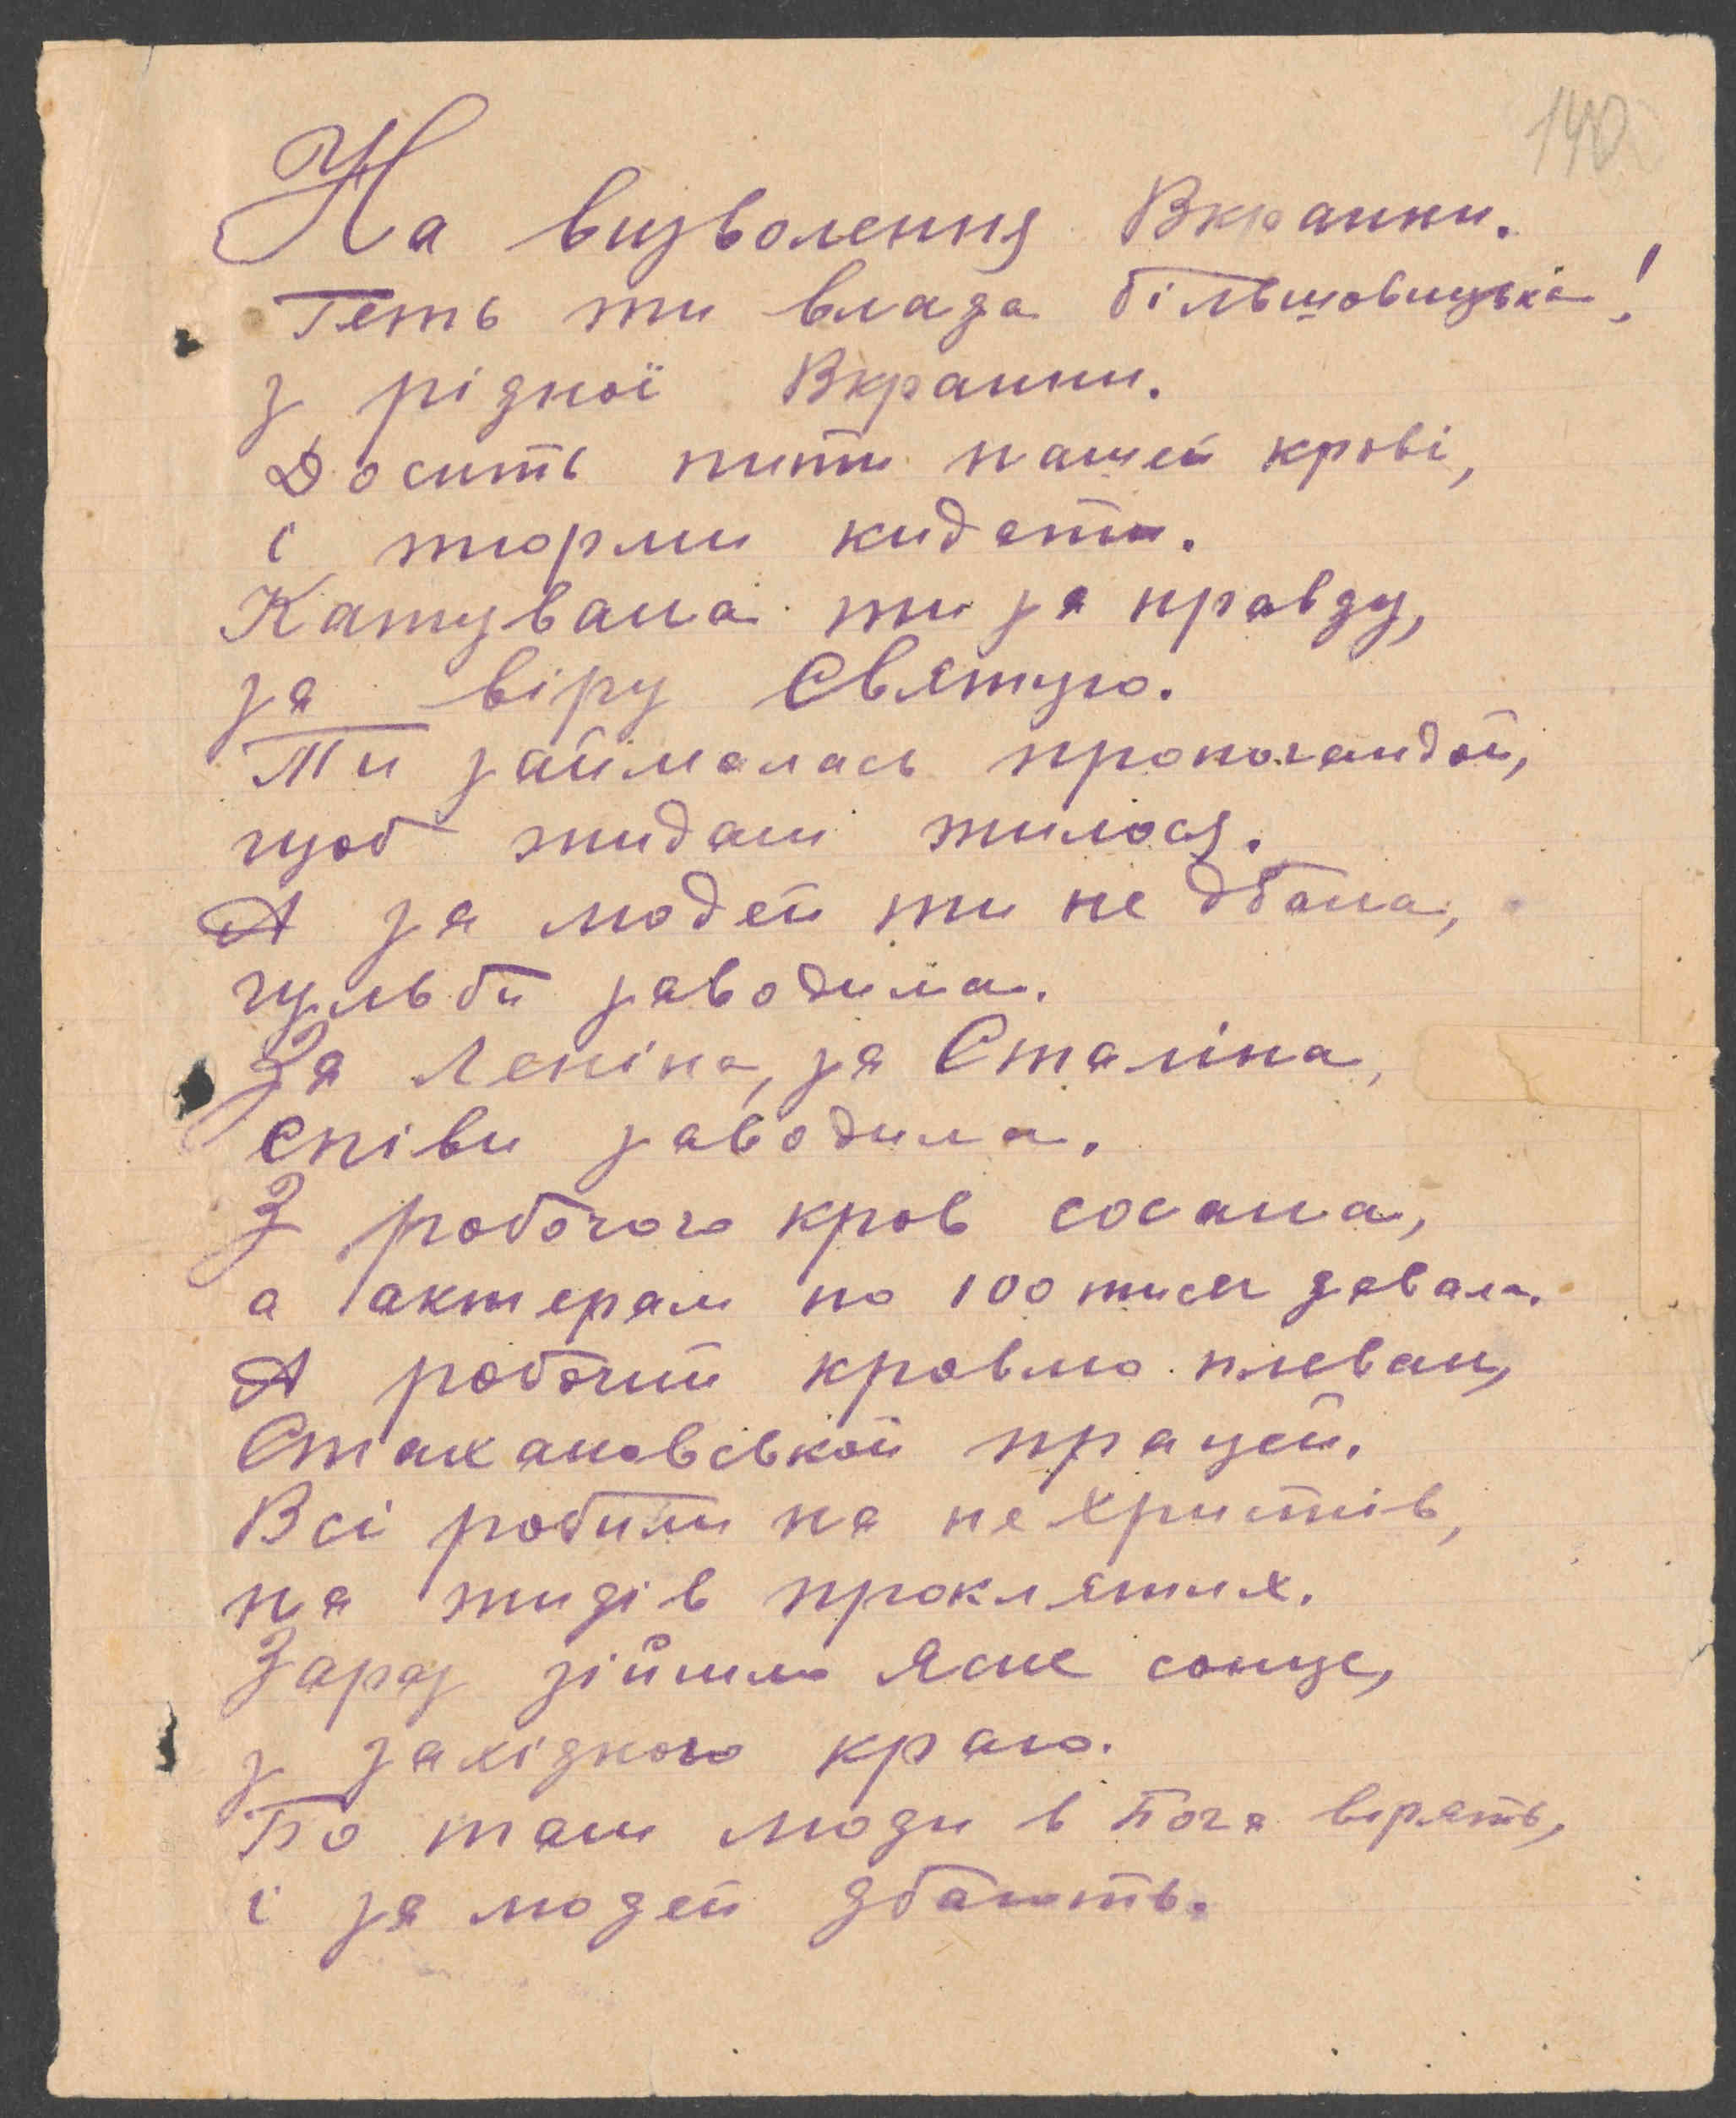 140
На визволення Вкраини.
Геть ти влада більшовицька!
з рідної Вкраини.
Досить пити нашей крові,
і тюрми кидати.
Катувала ти за правду,
за віру Святую.
Ти займалась пропогандой,
щоб жидам жилося.
А за людей ти не дбала,
гульби заводила.
За Леніна, за Сталіна,
співи заводила.
З робочого кров сосала,
а актерам по 100 тисяч давала.
А робочий кровлю плевал,
Стахановської працей.
Всі робили на нехристів,
на жидів проклятих.
Зараз зійшло ясне сонце,
з західного краю.
Бо там люди в Бога вірять,
і за людей дбають.